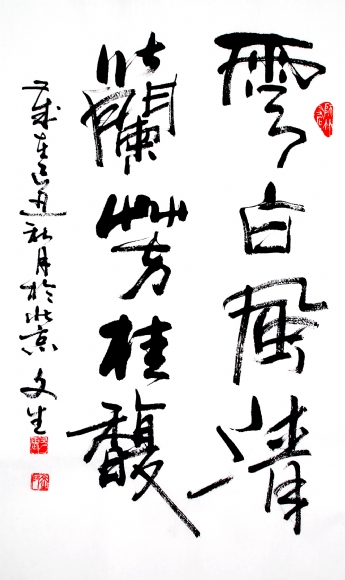 雲白風清
蘭芳桂馥
歲在己丑秋月於北京 文生